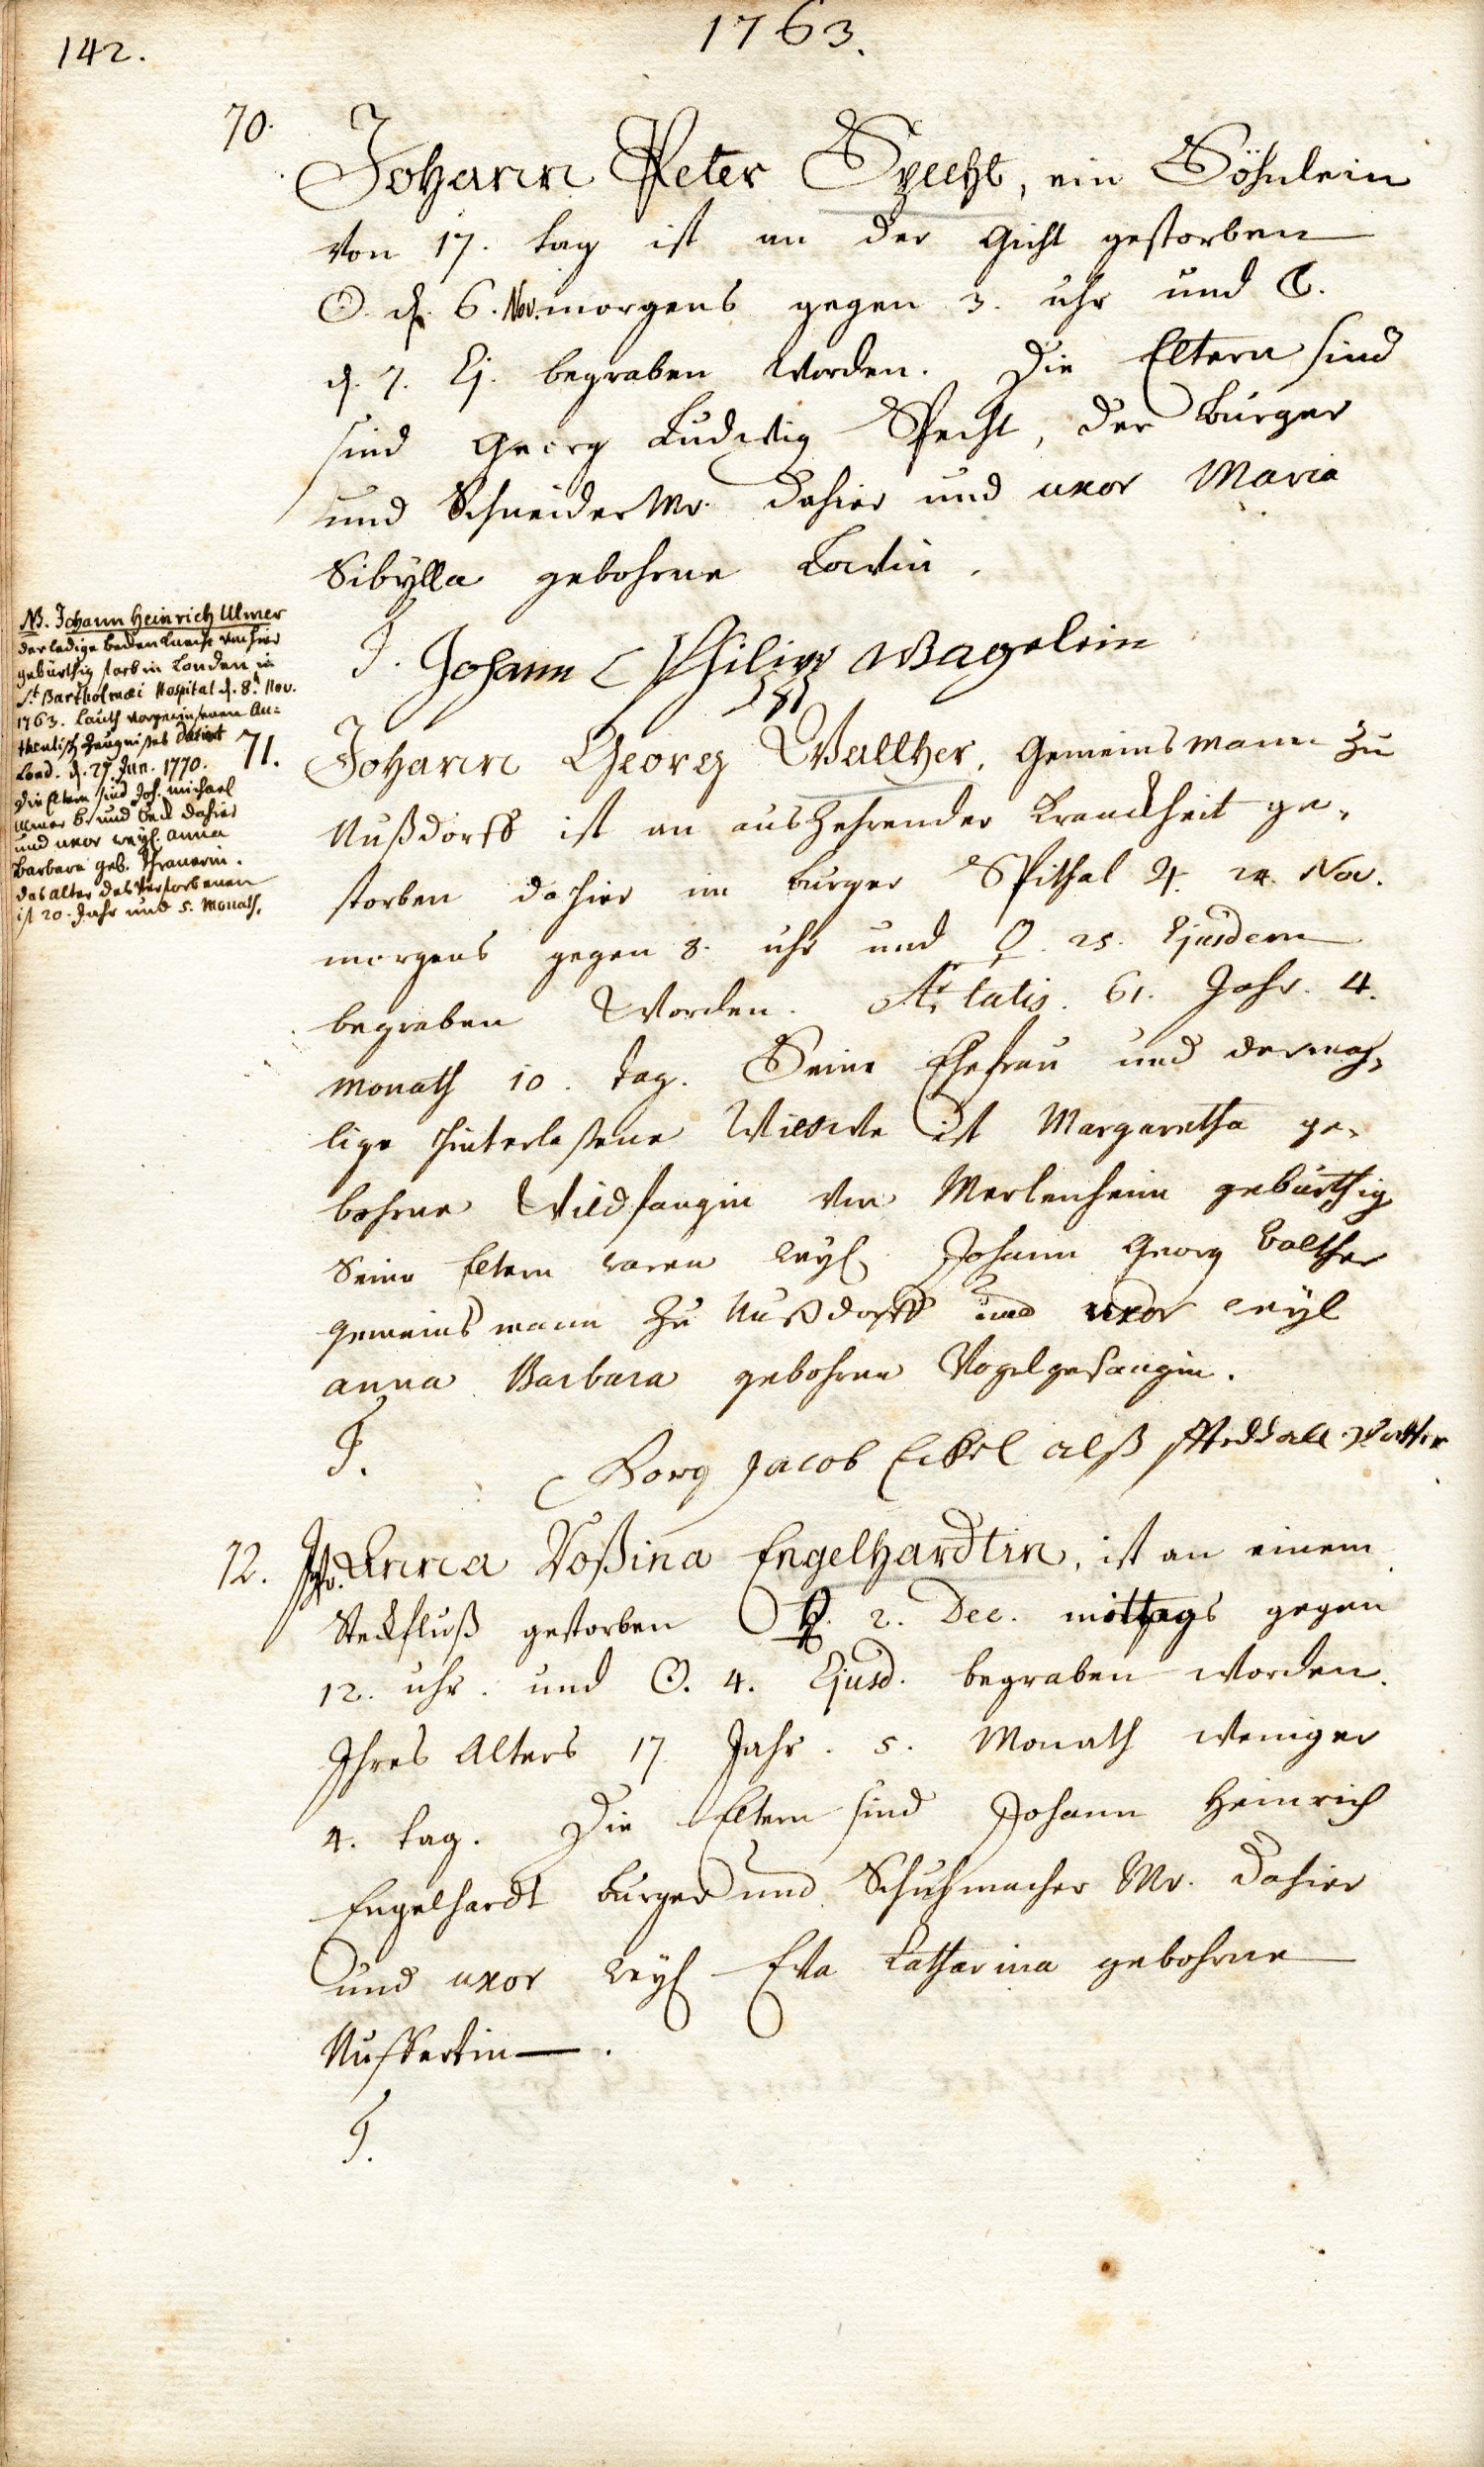 142.
1763.
70.
Johann Peter Specht, ein Söhnlein
von 17. tag ist an der Gicht gestorben
☉. d. 6. Nov. morgens gegen 3. uhr und ☾.
d. 7. Ej. begraben worden. Die Eltern sind
sind Georg Ludwig Specht, der Burger
und Schneider Mr. dahier und uxor Maria
Sibylla gebohrne
T. Johann Philipp Wagelein
NB. Johann Heinrich Ulmer
der ledige beckenknecht von hier
gebürthig starb in Londen in
St. Bartholmæi Hospital d. 8t. Nov.
1763. lauth vorgewiesenen Au=
thentisch Zeugnißes datirt
Lond. d. 27. Jun. 1770.
die Eltern sind Joh. Michael
Ulmer b. und beck dahier
und uxor weyl. Anna
Barbara geb.
das alter des Verstorbenen
ist 20. Jahr und 5. Monath.
71.
Johann Georg Wallther, Gemeinsmann zu
Nußdorff ist an auszehrender Kranckheit ge,
storben dahier im burger Spithal ♃. 24. Nov.
morgens gegen 8. uhr und ♀. 25. Ejusdem
begraben worden. Ætatis. 61. Jahr. 4.
Monath 10. tag. Seine Ehefrau und dermah,
lige hinterlaßene Wittwe ist Margaretha ge,
bohrne Wildfangin von Merlenheim gebürthig
Seine Eltern waren weyl. Johann Georg Walther
gemeinsmann zu Nußdorff und uxor weyl
anna Barbara gebohrne Vogelgesangin.
T. Georg Jacob Eckel alß
72.
Jgfr. Anna Roßina Engelhardtin, ist an einem
Steckfluß gestorben ♀. 2. Dec. mittags gegen
12. uhr. und ☉. 4. Ejusd. begraben worden.
Ihres Alters 17. Jahr. 5. Monath weniger
4. tag. Die Eltern sind Johann Heinrich
Engelhardt burger und Schuhmacher Mr. dahier
und uxor weyl. Eva Catharina gebohrne
T.